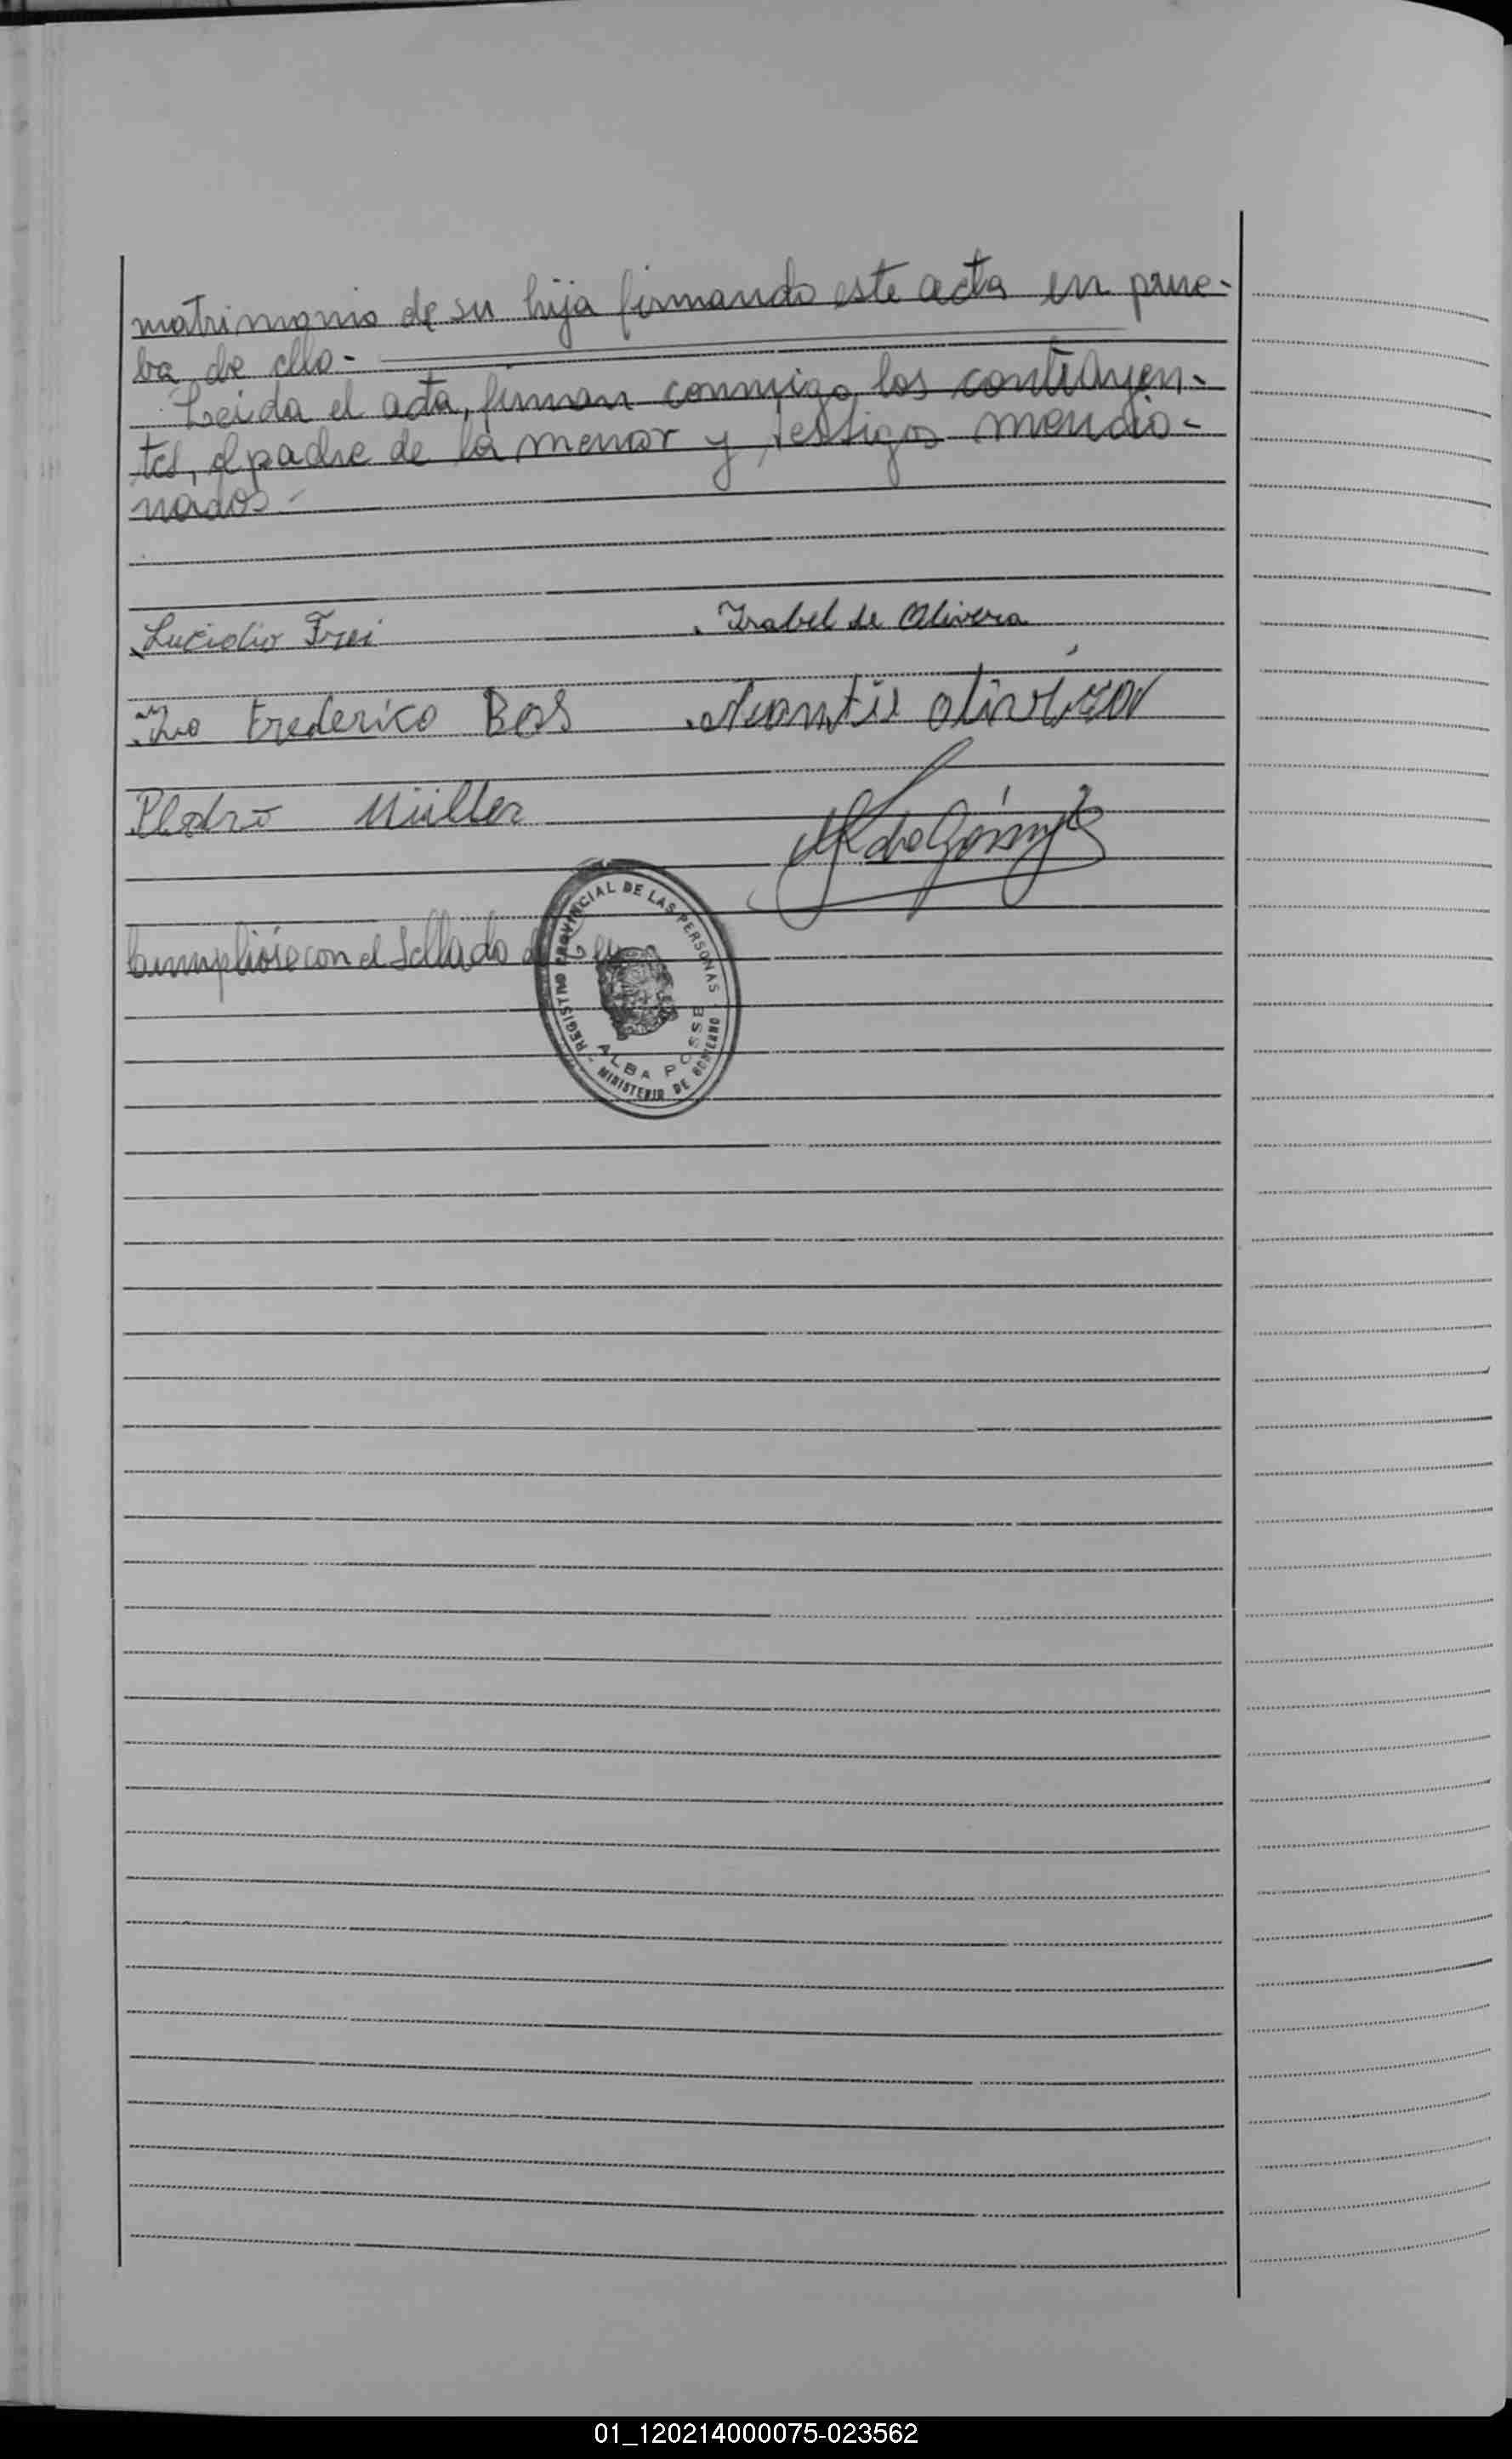 matrimonio de su hija firmando este acta en prue-
ba de ello.-
Leida el acta, firman conmigo los contrayen-
tes, el padre de la menor y testigos mencio-
nados.-
Lucidio Frei
Isabel de Olivera
Frederico Bos
Pedro Müller
Cumplióse con el Sellado de Ley
REGISTRO PROVINCIAL DE LAS PERSONAS
ALBA POSSE
- MINISTERIO DE GOBIERNO -
01_120214000075-023562